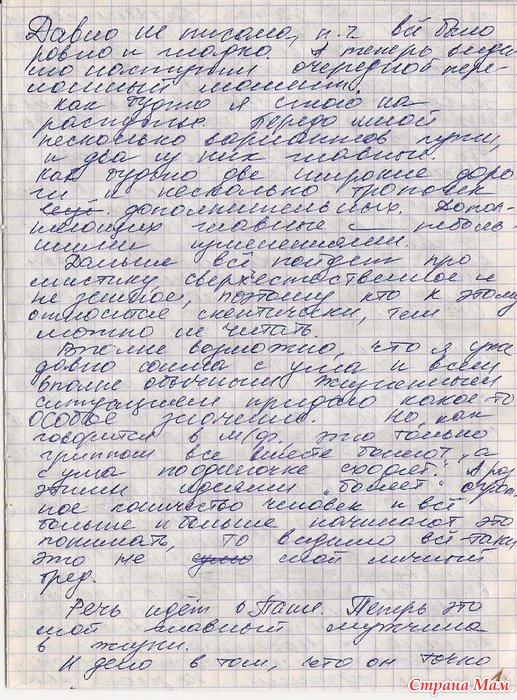 Давно не писала, п.ч. всё было
ровно и гладко. А теперь види-
мо наступил очередной пере-
ломный момент.
Как будто я стою на
распутье. Передо мной
несколько вариантов пути,
и два из них главные.
Как будто две широкие доро
ги и несколько тропинок
ещё дополнительных. Допол-
няющих главные – неболь-
шими изменениями.
Дальше всё пойдёт про
мистику, сверхестественное и
не земное, поэтому кто к этому
относится скептически, тем
можно не читать.
Вполне возможно, что я уже
давно сошла с ума и всем
вполне обычным жизненным
ситуациям придаю какое-то
особое значение. Но, как
говорится в м/ф, это только
гриппом все вместе болеют, а
с ума поодиночке сходят". А раз
этими идеями "болеет"
ное количество человек и всё
больше и больше начинают это
понимать, то видимо всё-таки
это не мой личный
бред.
Речь идёт о Паше. Теперь это
мой главный мужчина
в жизни.
И дело в том, что он точно
1
Страна Мам